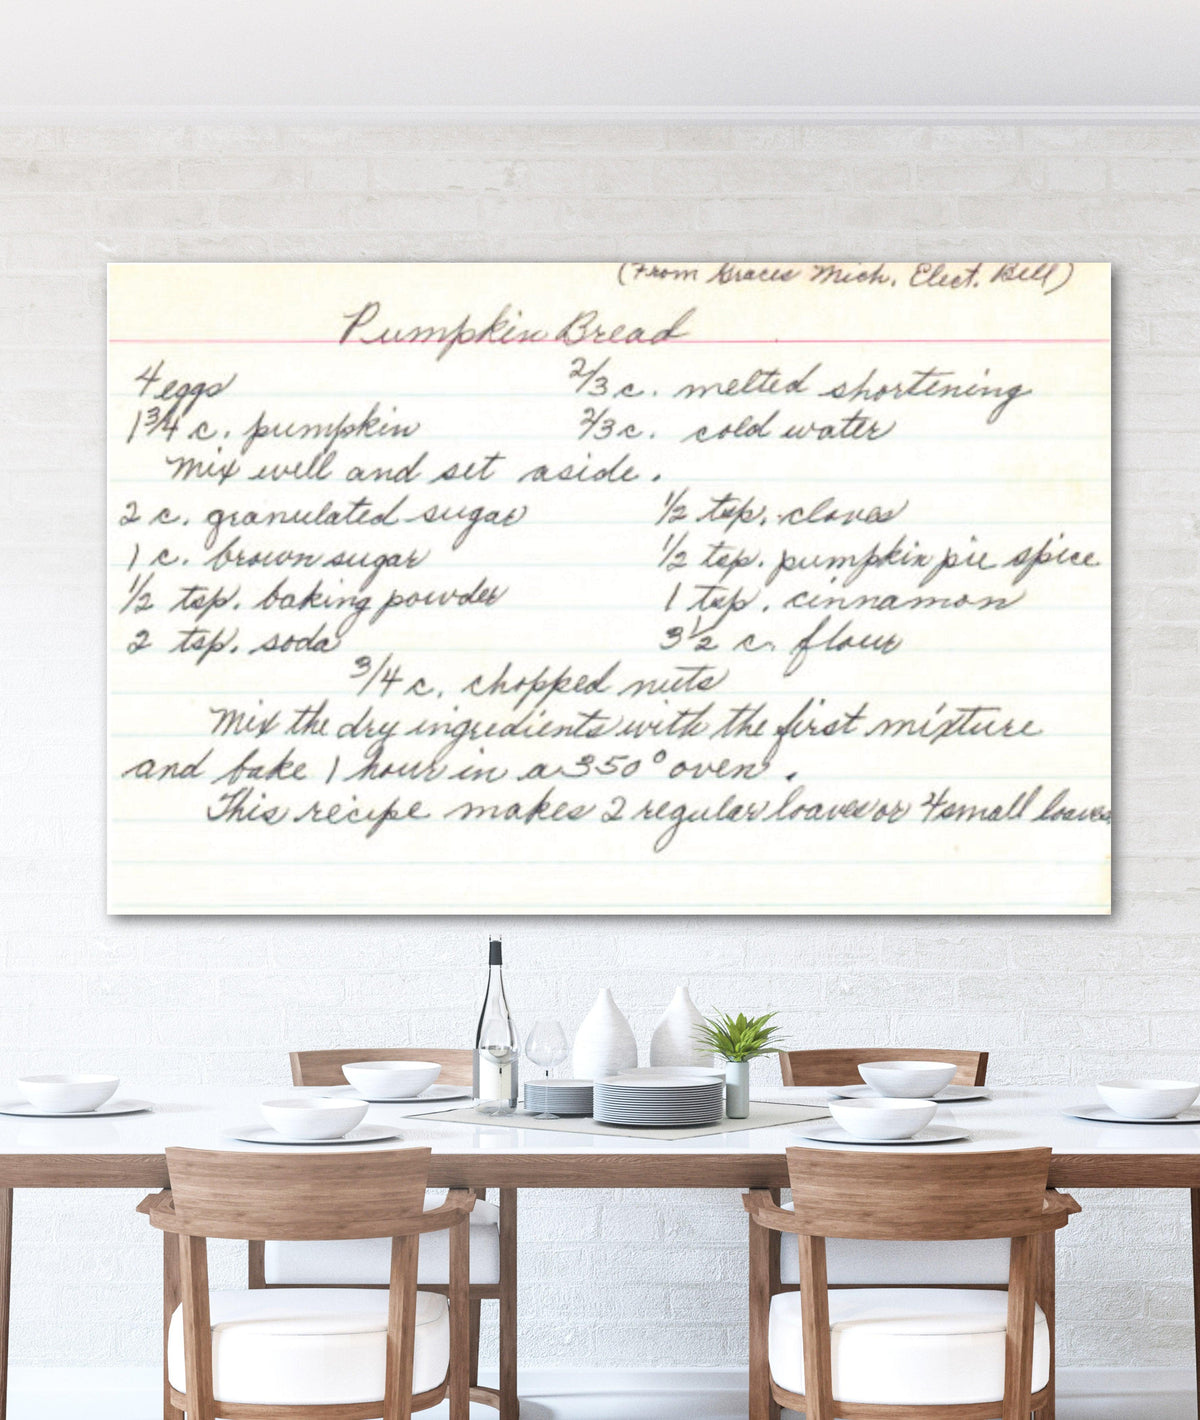 (From Graces Mich. Elect. Bill)
Pumpkin Bread
4 eggs 2/3 c. melted shortening
1 3/4 c. pumpkin 2/3 c. cold water
Mix well and set aside.
2 c. granulated sugar 1/2 tsp. cloves
1 c. brown sugar 1/2 tsp. pumpkin pie spice
1/2 tsp. baking powder 1 tsp. cinnamon
2 tsp. soda 3 1/2 c. flour
3/4 c. chopped nuts
Mix the dry ingredients with the first mixture
and bake 1 hour in a 350° oven.
This recipe makes 2 regular loaves or 4 small loaves